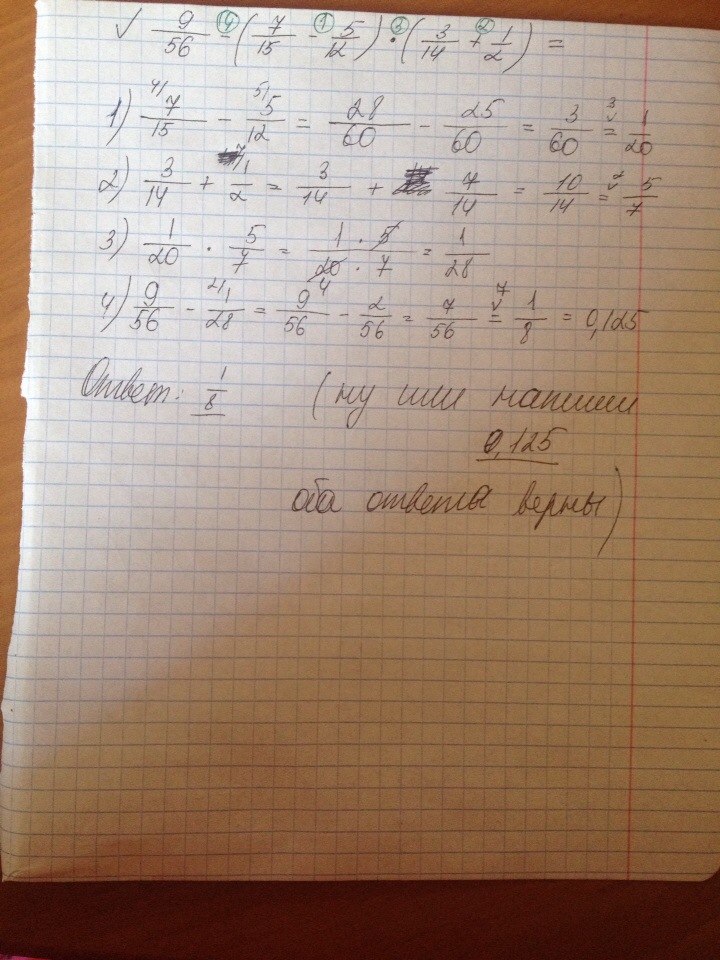 ✓ 9/56 -④ (7/15 -① 5/12) ·③ (3/14 +② 1/2) =
1) 7/15 (4) - 5/12 (5) = 28/60 - 25/60 = 3/60 =(3) 1/20
2) 3/14 + 1/2 (7) = 3/14 + 7/14 = 10/14 =(2) 5/7
3) 1/20 · 5/7 = (1 · 5)/(20 · 7) 4 = 1/28
4) 9/56 - 1/28 (2) = 9/56 - 2/56 = 7/56 =(7) 1/8 = 0,125
Ответ: 1/8 (ну или напиши
0,125
оба ответа верны)